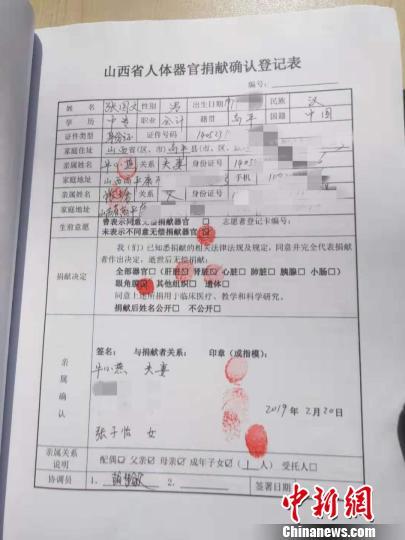 山西省人体器官捐献确认登记表
编号:
姓 名 张国文 性别 男 出生日期 民族 汉
学 历 中专 职业 会计 籍贯 高平 国籍 中国
证件类型 身份证 证件号码 140523
家庭住址 山西省(区、市)高平县(市、区)
亲属姓名 牛小燕 关系 夫妻 身份证号
家庭地址 手机
亲属姓名 关系 父 身份证号
家庭地址
生前意愿 曾表示同意无偿捐献器官□ 志愿者登记卡编号:
未表示不同意无偿捐献器官
捐献决定
我(们)已知悉捐献的相关法律法规及规定,同意并完全代表捐献
者作出决定,逝世后无偿捐献:
全部器官□(肝脏 肾脏 心脏□ 肺脏□ 胰腺□ 小肠□)
眼角膜 其他组织□ 遗体□
同意上述所捐用于临床医疗、教学和科学研究。
捐献后姓名公开□ 不公开□
亲属确认
签名: 与捐献者关系: 印章(或指模):
牛小燕 夫妻
2019年2月20日
张子怡 女
亲属关系说明 配偶☑ 父亲☑ 母亲☑ 成年子女☑(1人) 受托人□
协调员 1. 2. 签署日期
中新网